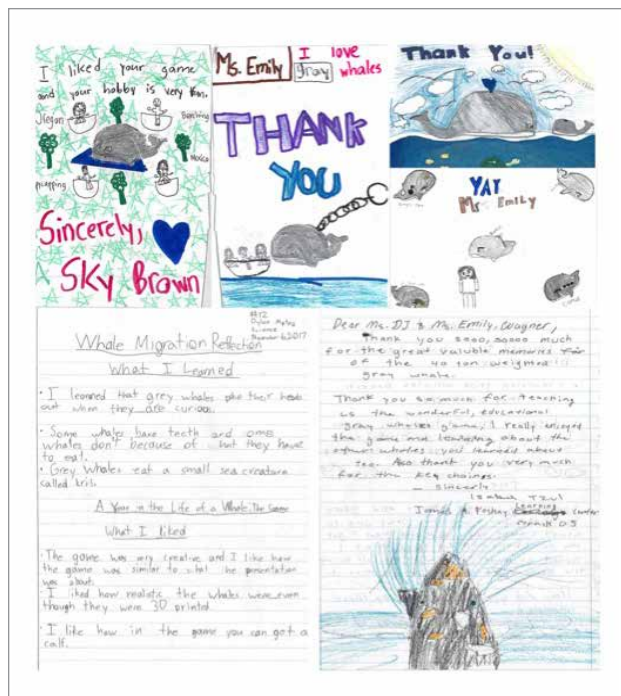 I liked your game
and your hobby is very fun.
Sincerely,
Sky Brown
Ms. Emily
I love
gray whales
THANK
YOU
Thank You!
YAY
Ms. Emily
#12
Science
2017
Whale Migration Reflection
What I Learned
• I learned that grey whales poke their heads
out when they are curious.
• Some whales have teeth and some
whales don't because of what they have
to eat.
• Grey Whales eat a small sea creature
called krill.
A Year in the Life of a Whale: The Game
What I liked
• The game was very creative and I like how
the game was similar to what the presentation
was about.
• I liked how realistic the whales were even
though they were 3D printed
• I like how in the game you can get a
calf.
Dear Ms. DJ & Ms. Emily, Wagner,
Thank you sooo, soooo much
for the great valuable memories for
of the 40 ton weighted
gray whale.
Thank you so much for teaching
us the wonderful, educational
gray whales game, I really enjoyed
the game and learning about the
other whales you learned about
too. Also thank you very much
for the key chains.
- Sincerely
James A. Foshay Learning Center